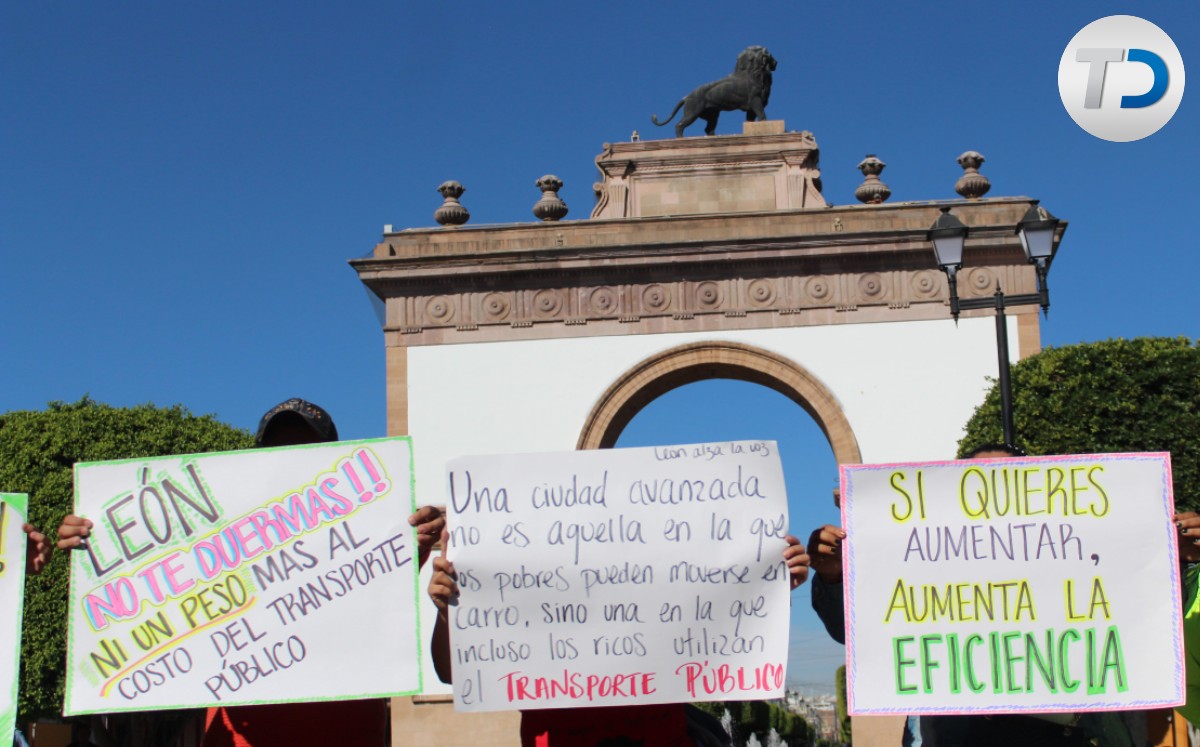 TD
LEÓN
NO TE DUERMAS!!
NI UN PESO MAS AL
COSTO DEL TRANSPORTE
PÚBLICO
León alza la voz
Una ciudad avanzada
no es aquella en la que
los pobres pueden moverse en
carro, sino una en la que
incluso los ricos utilizan
el TRANSPORTE PÚBLICO
SI QUIERES
AUMENTAR,
AUMENTA LA
EFICIENCIA